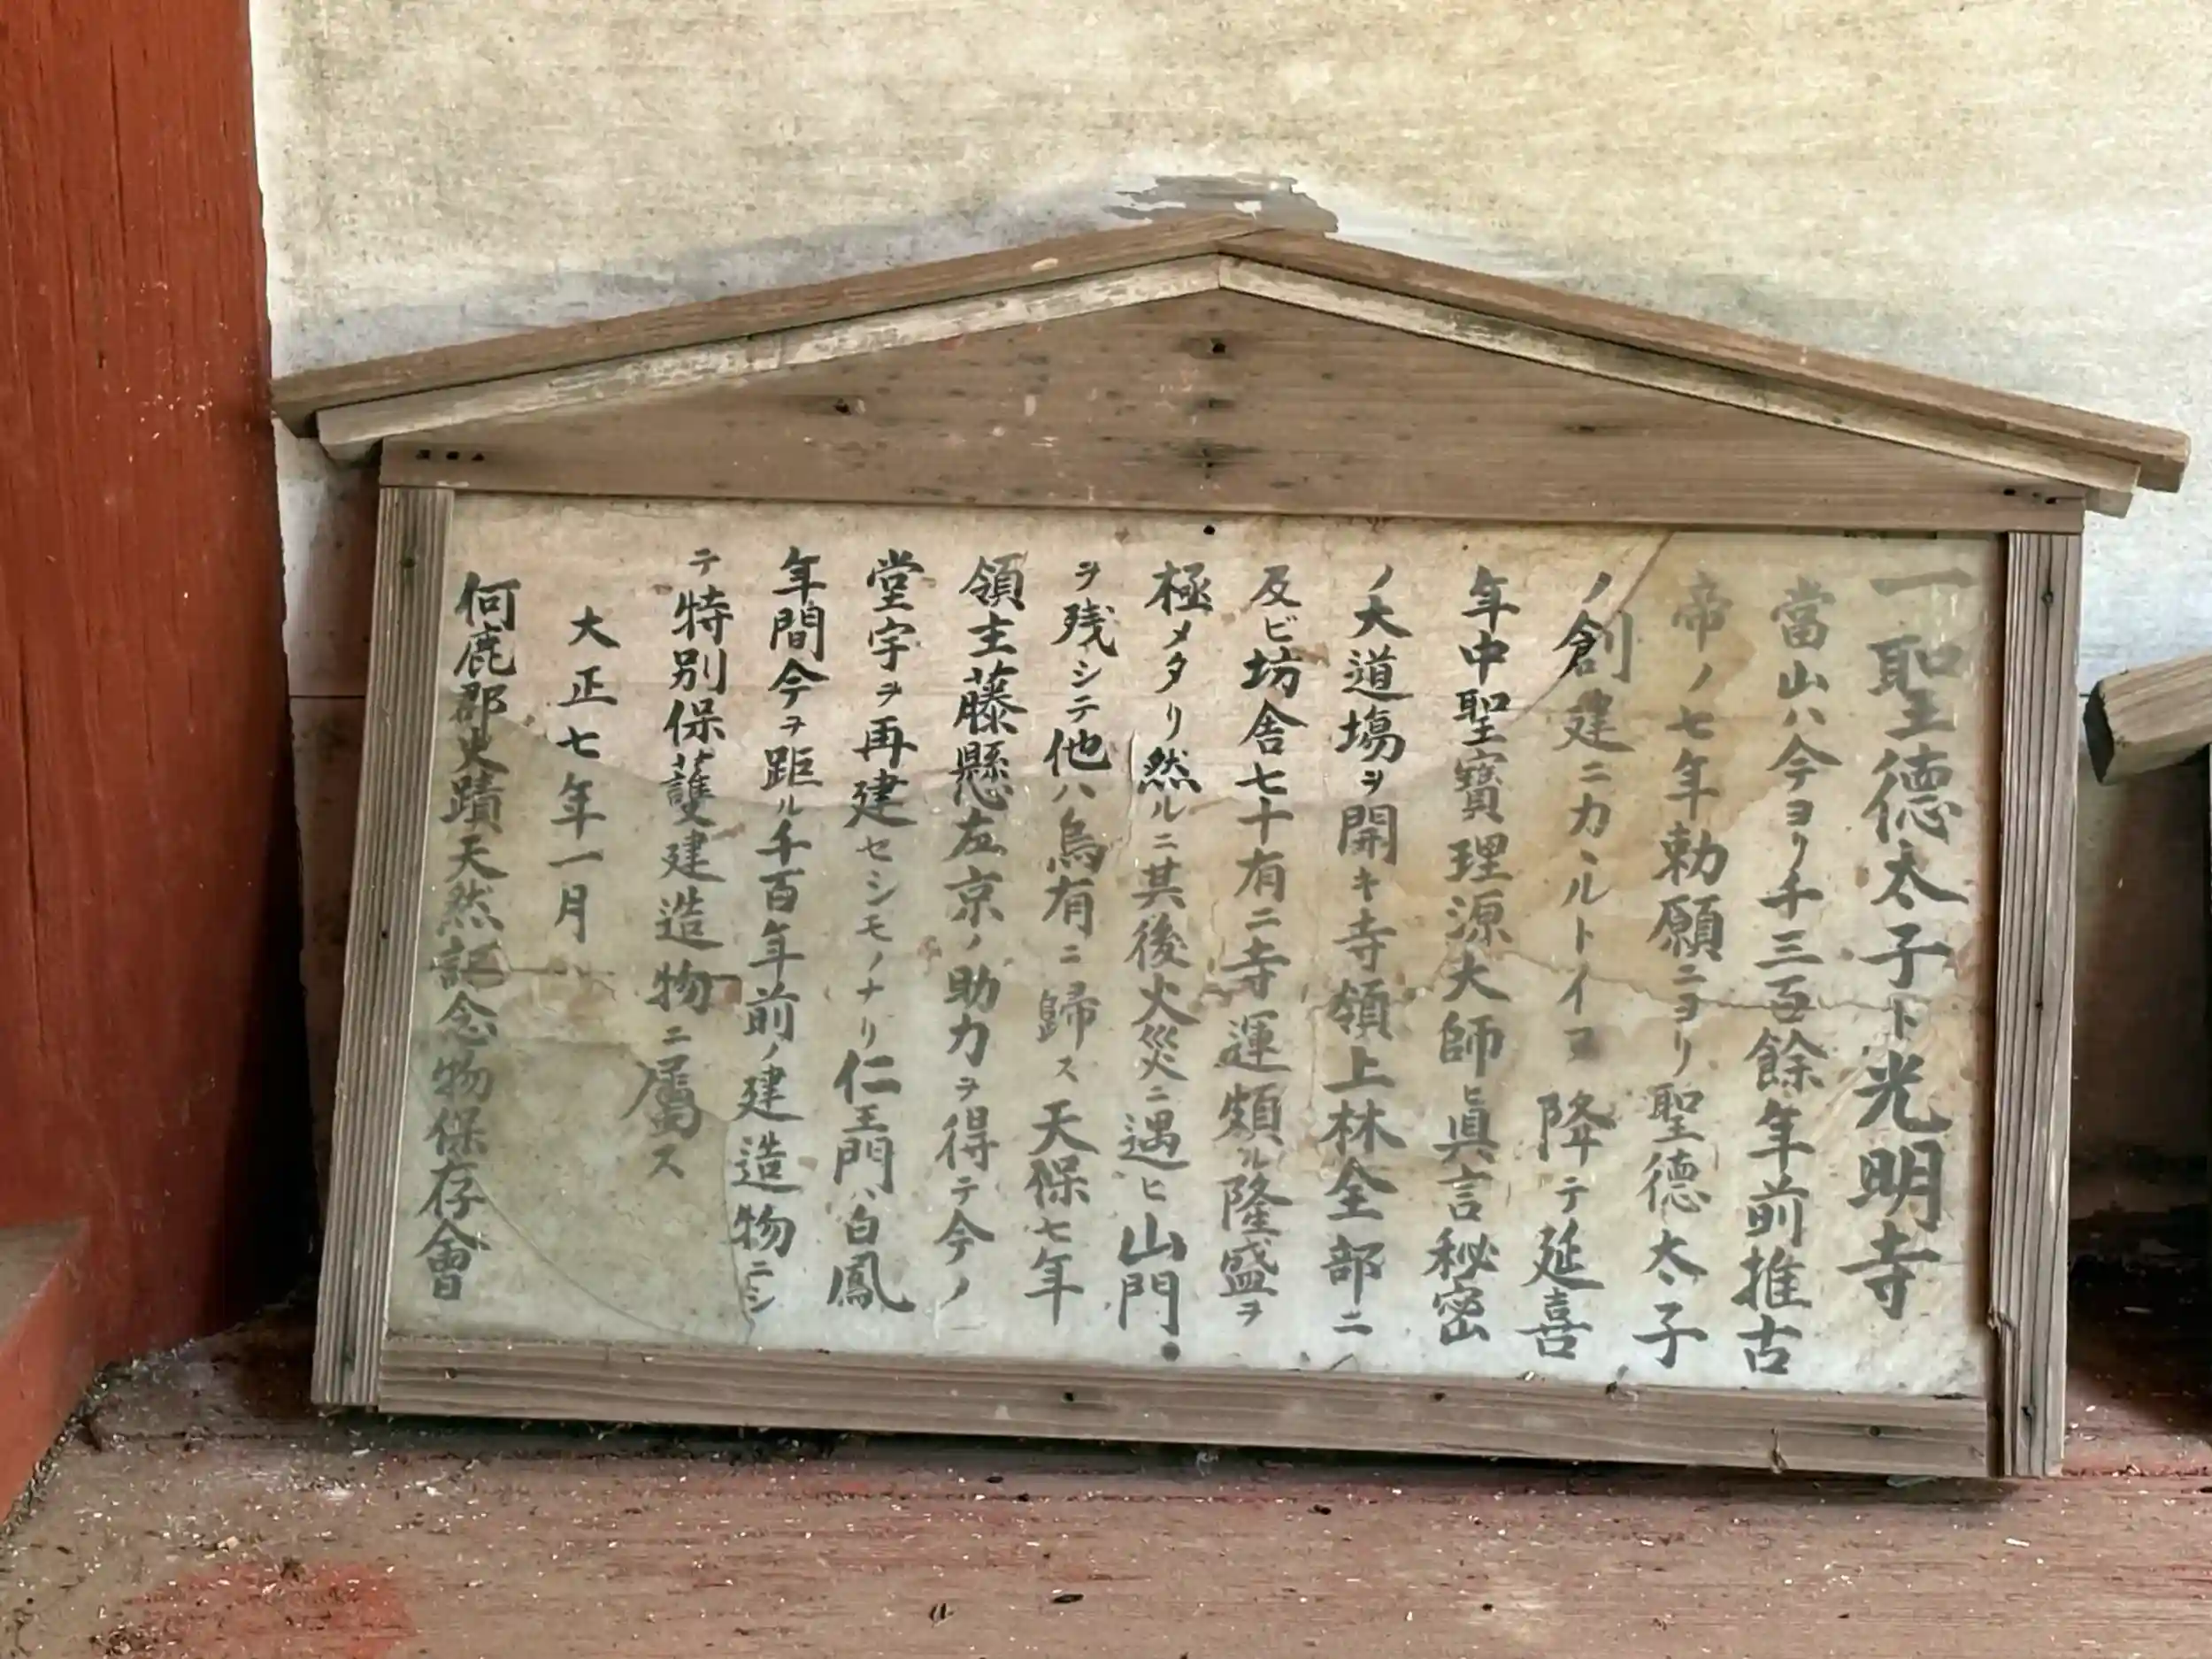 一聖徳太子ト光明寺
當山ハ今ヨリ千三百餘年前推古
帝ノ七年勅願ニヨリ聖徳太子
ノ創建ニカヽルトイフ 降テ延喜
年中聖寳理源大師眞言秘密
ノ大道塲ヲ開キ寺領上林全部ニ
及ビ坊舎七十有二寺運頗ル隆盛ヲ
極メタリ然ルニ其後火災ニ遇ヒ山門
ヲ残シテ他ハ烏有ニ歸ス天保七年
領主藤懸左京ノ助力ヲ得テ今ノ
堂宇ヲ再建セシモノナリ仁王門ハ白鳳
年間今ヲ距ル千百年前ノ建造物ニシ
テ特別保護建造物ニ屬ス
大正七年一月
何鹿郡史蹟天然記念物保存會